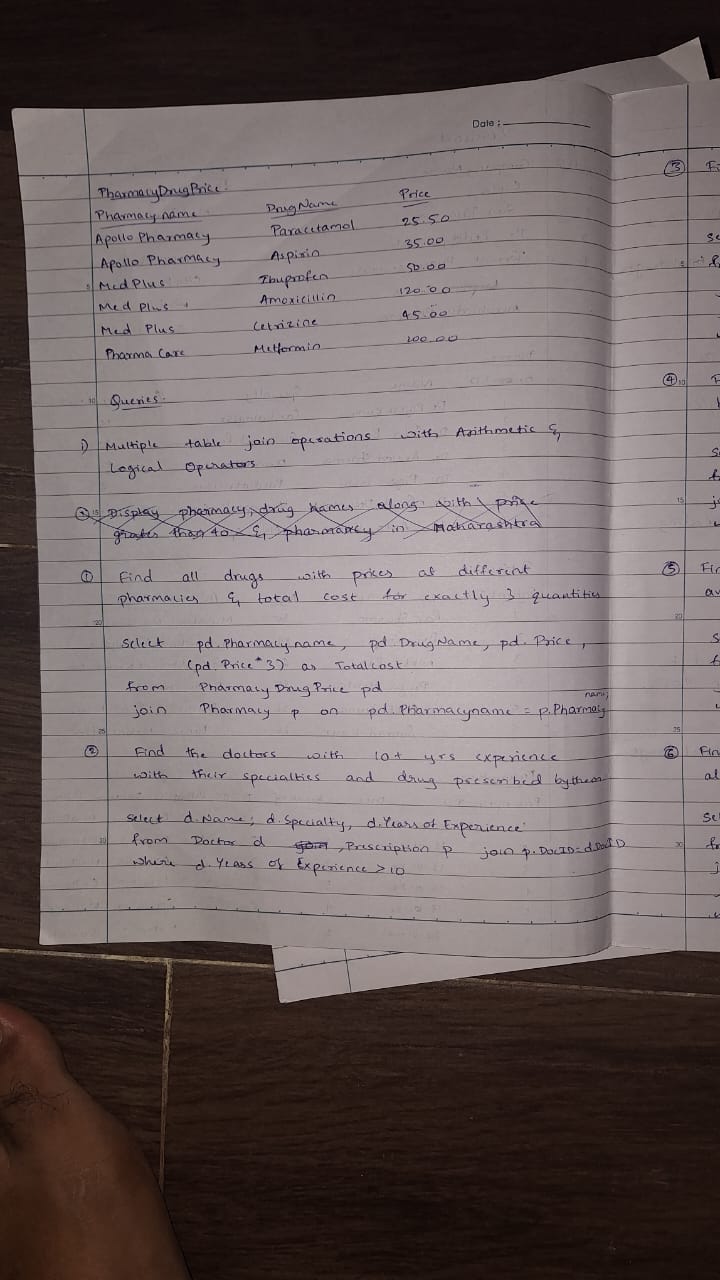 Date :
PharmacyDrugPrice:
Pharmacy name DrugName Price
Apollo Pharmacy Paracetamol 25.50
Apollo Pharmacy Aspirin 35.00
Med Plus Ibuprofen 50.00
Med Plus Amoxicillin 120.00
Med Plus Cetrizine 45.00
Pharma Care Metformin 200.00
10 Queries:
1) Multiple table join operations with Arithmetic &
Logical Operators
① 15 Display pharmacy, drug names along with price
greater than 40 & pharmancy in Maharashtra
① Find all drugs with prices at different
pharmacies & total cost for exactly 3 quantities
20
Select pd.Pharmacy name, pd.DrugName, pd.Price,
(pd.Price*3) as Totalcost
from PharmacyDrugPrice pd
join Pharmacy p on pd.Pharmacyname = p.Pharmacy
name;
25
② Find the doctors with 10+ yrs experience
with their specialties and drug prescribed by them
Select d.Name, d.Specialty, d.Years of Experience
30 from Doctor d join , Prescription p join p.DocID=d.DocID
where d.Years of Experience >10
③ Fi
Se
5
④ 10 F
S
f
15 j
⑤ Fin
av
20
S
f
25
⑥ Fin
al
Se
30 fr
j